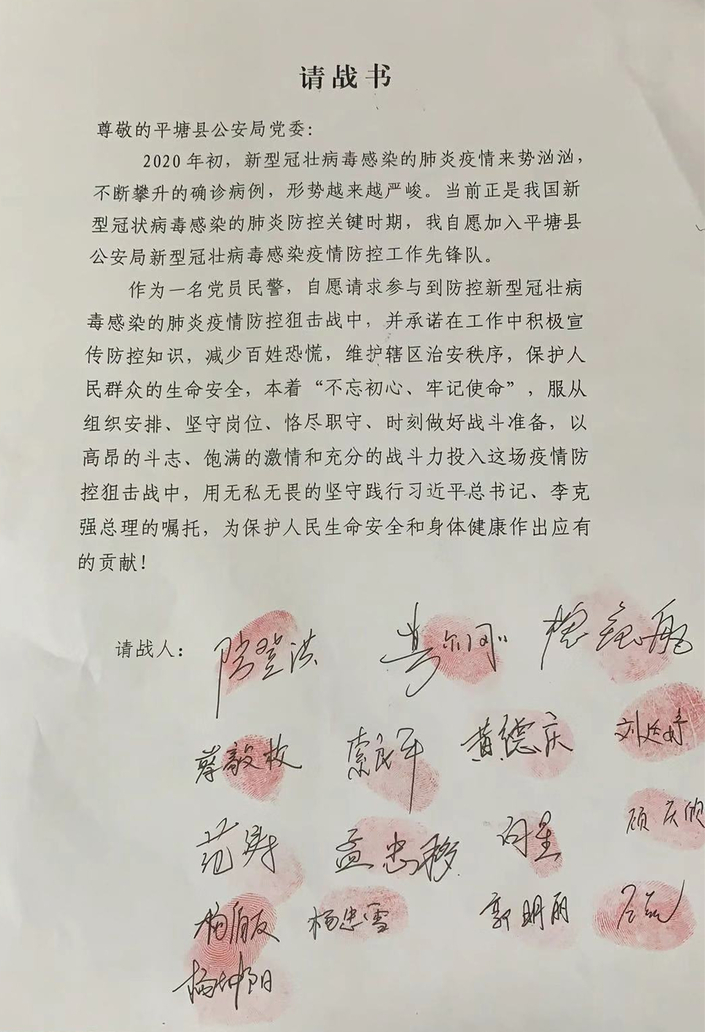 请战书
尊敬的平塘县公安局党委：
2020年初，新型冠壮病毒感染的肺炎疫情来势汹汹，
不断攀升的确诊病例，形势越来越严峻。当前正是我国新
型冠状病毒感染的肺炎防控关键时期，我自愿加入平塘县
公安局新型冠壮病毒感染疫情防控工作先锋队。
作为一名党员民警，自愿请求参与到防控新型冠壮病
毒感染的肺炎疫情防控狙击战中，并承诺在工作中积极宣
传防控知识，减少百姓恐慌，维护辖区治安秩序，保护人
民群众的生命安全，本着“不忘初心、牢记使命”，服从
组织安排、坚守岗位、恪尽职守、时刻做好战斗准备，以
高昂的斗志、饱满的激情和充分的战斗力投入这场疫情防
控狙击战中，用无私无畏的坚守践行习近平总书记、李克
强总理的嘱托，为保护人民生命安全和身体健康作出应有
的贡献！
请战人：
黄德庆
孟忠移
杨忠雪 郭明丽